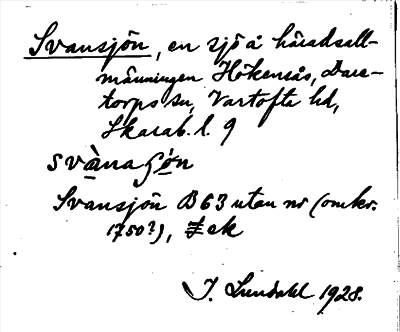 Svansjön, en sjö å häradsall-
männingen Hökensås, Dare-
torps sn, Vartofta hd,
Skarab. l. 9
svànaʃön
Svansjön B63 utan nr (omkr.
1750?), Eek
J. Lundahl 1928.